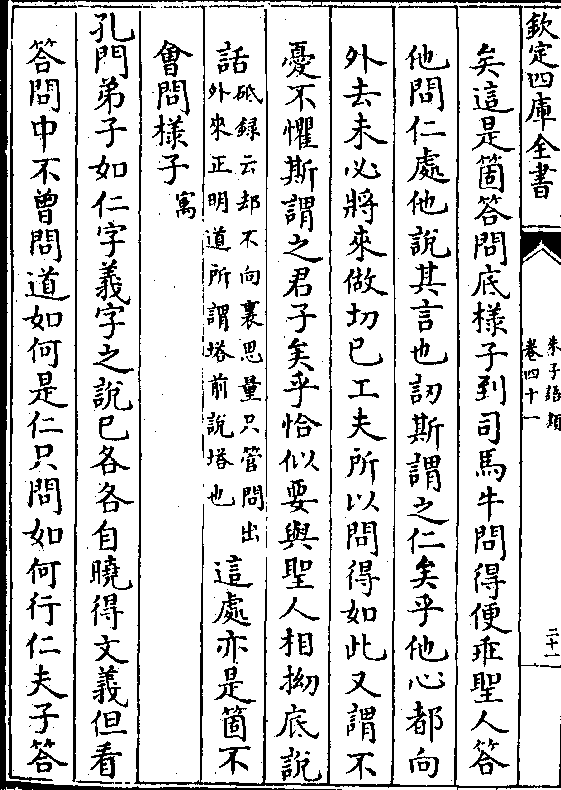 欽定四庫全書
朱子語類
卷四十一
二十一
矣這是箇答問底樣子到司馬牛問得便乖聖人答
他問仁處他說其言也訒斯謂之仁矣乎他心都向
外去未必將來做切己工夫所以問得如此又謂不
憂不懼斯謂之君子矣乎恰似要與聖人相拗底說
話砥録云却不向裏思量只管問出外來正明道所謂塔前說塔也這處亦是箇不
會問樣子㝢
孔門弟子如仁字義字之說已各各自曉得文義但看
答問中不曾問道如何是仁只問如何行仁夫子答